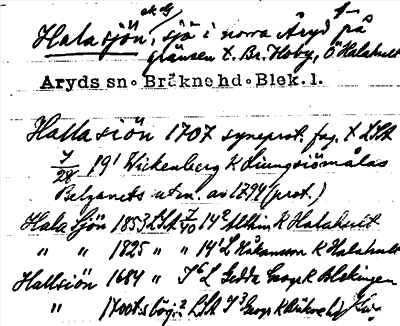 Halasjön, sjö i norra Åryd på
gränsen t. Br. Hoby, Ö Halahult
Aryds sn. Bräkne hd. Blek. l.
Hallasiön 1707 syneprot. fag. t LSA
7/28 19¹ Wickenberg K Liungsiömålas
Belganets utm. av 1794 (prot.)
Hala Sjön 1853 LSA 7/40 14² Althin K Halahult
" " 1825 " " 14¹ L Håkansson K Halahult
Hallsiön 1684 " J⁶ L Gedda Geogr K Blekingen
" 1700t.s början LSA J³ Geogr K Bräkne hd